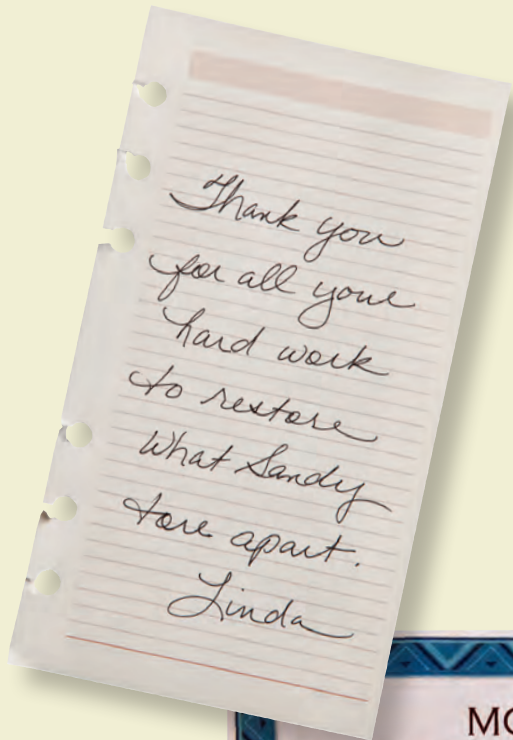 Thank you
for all your
hard work
to restore
What Sandy
tore apart.
Linda
MO